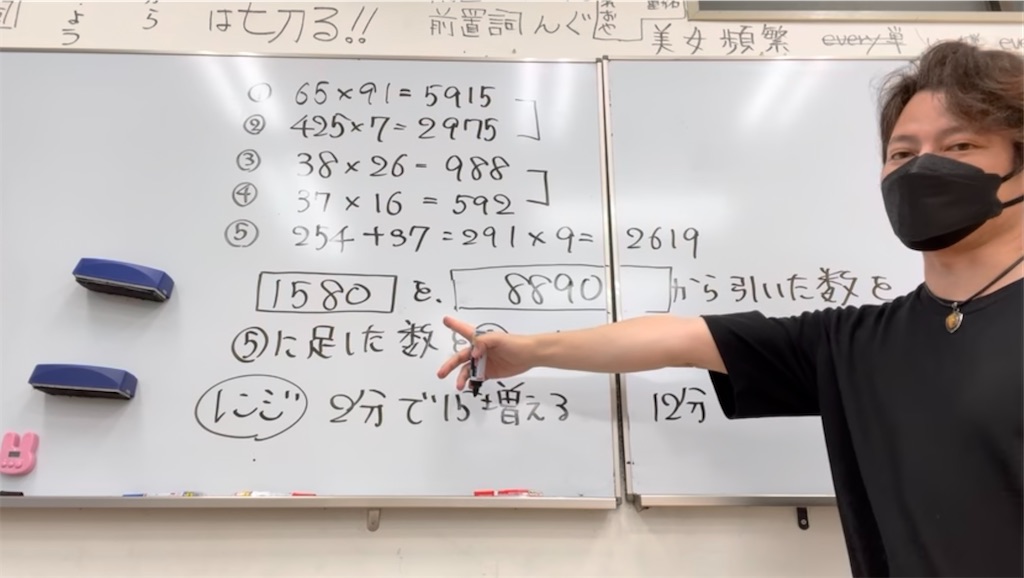 は七刀る!!
前置詞 んぐ
美女 頻繁 every 単
① 65×91=5915
② 425×7=2975
③ 38×26=988
④ 37×16=592
⑤ 254+37=291×9=2619
1580 を、8890 から引いた数を
⑤に足した数
にじ 2分で15 増える 12分